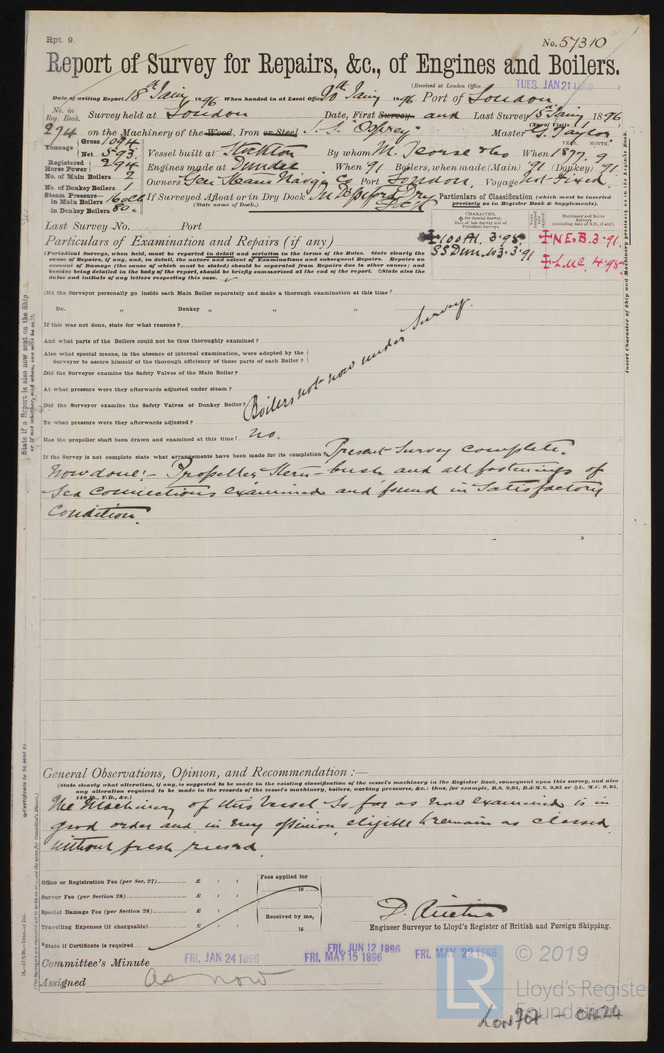 Rpt. 9.
No. 57310
Report of Survey for Repairs, &c., of Engines and Boilers.
(Received at London Office TUES. JAN 21 1896
Date of writing Report 18th Jany 1896 When handed in at Local Office 20th Jany 1896 Port of London
No. in Reg. Book. Survey held at London Date, First Survey and Last Survey 15th Jany 1896
294 on the Machinery of the Wood, Iron or Steel S.S. "Osprey" Master G. Taylor
Tonnage Gross 1094
Net 593 Vessel built at Stockton By whom M. Pearse & Co When 1877. 9
Registered Horse Power 294 Engines made at Dundee When '91 Boilers, when made (Main) '91 (Donkey) '91
No. of Main Boilers 2
No. of Donkey Boilers 1 Owners Gen Steam Navgn Co Port London Voyage Not Fixed
Steam Pressure in Main Boilers 160 lbs If Surveyed Afloat or in Dry Dock Deptford Dry Dock
in Donkey Boilers 80 (State name of Dock.)
Particulars of Classification (which must be inserted precisely as in Register Book & Supplements).
Last Survey No. Port
CHARACTER.
✠100A1. 3.95
SS Dun. No3-3.91
✠N.E.B. 3.91.
✠L.M.C. 4.95
Particulars of Examination and Repairs (if any)
(Periodical Surveys, when held, must be reported in detail and seriatim in the terms of the Rules. State clearly the
cause of Repairs, if any, and, in detail, the nature and extent of Examinations and subsequent Repairs. Repairs on
account of Damage (the cause of which must be stated) should be separated from Repairs due to other causes; and
besides being detailed in the body of the report, should be briefly summarised at the end of the report. State also the
dates and initials of any letters respecting this case.
Did the Surveyor personally go inside each Main Boiler separately and make a thorough examination at this time?
Do. „ Donkey „ „ „
If this was not done, state for what reasons?
And what parts of the Boilers could not be thus thoroughly examined?
Also what special means, in the absence of internal examination, were adopted by the
Surveyor to assure himself of the thorough efficiency of those parts of each Boiler?
Did the Surveyor examine the Safety Valves of the Main Boiler?
At what pressure were they afterwards adjusted under steam?
Did the Surveyor examine the Safety Valves of Donkey Boiler?
Boilers not now under survey.
To what pressure were they afterwards adjusted?
Has the propeller shaft been drawn and examined at this time? No.
If the Survey is not complete state what arrangements have been made for its completion Present Survey complete.
Now done:- Propeller, Stern-bush and all fastenings of
Sea Connections examined and found in Satisfactory
Condition.
General Observations, Opinion, and Recommendation:—
(State clearly what alteration, if any, is suggested to be made in the existing classification of the vessel's machinery in the Register Book, consequent upon this survey, and also
any alteration required to be made in the records of the vessel's machinery, boilers, working pressures, &c.: thus, for example, B.S. 9,95, B.&M.S. 9,95 or ✠L.M.C. 9,95,
140 lb., F.D., &c.)
The Machinery of this Vessel so far as now examined is in
good order and, in my opinion, eligible to remain as classed
without fresh record.
Office or Registration Fee (per Sec. 27) £ : : Fees applied for
18
Survey Fee (per Section 28) £ : :
Special Damage Fee (per Section 28) £ : : Received by me,
Travelling Expenses (if chargeable) £ : : 18
Engineer Surveyor to Lloyd's Register of British and Foreign Shipping.
*State if Certificate is required
Committee's Minute FRI. JAN 24 1896 FRI. JUN 12 1896
FRI. MAY 15 1896 FRI. MAY 22 1896
Assigned as now
© 2019
LR
Lloyd's Register
Foundation